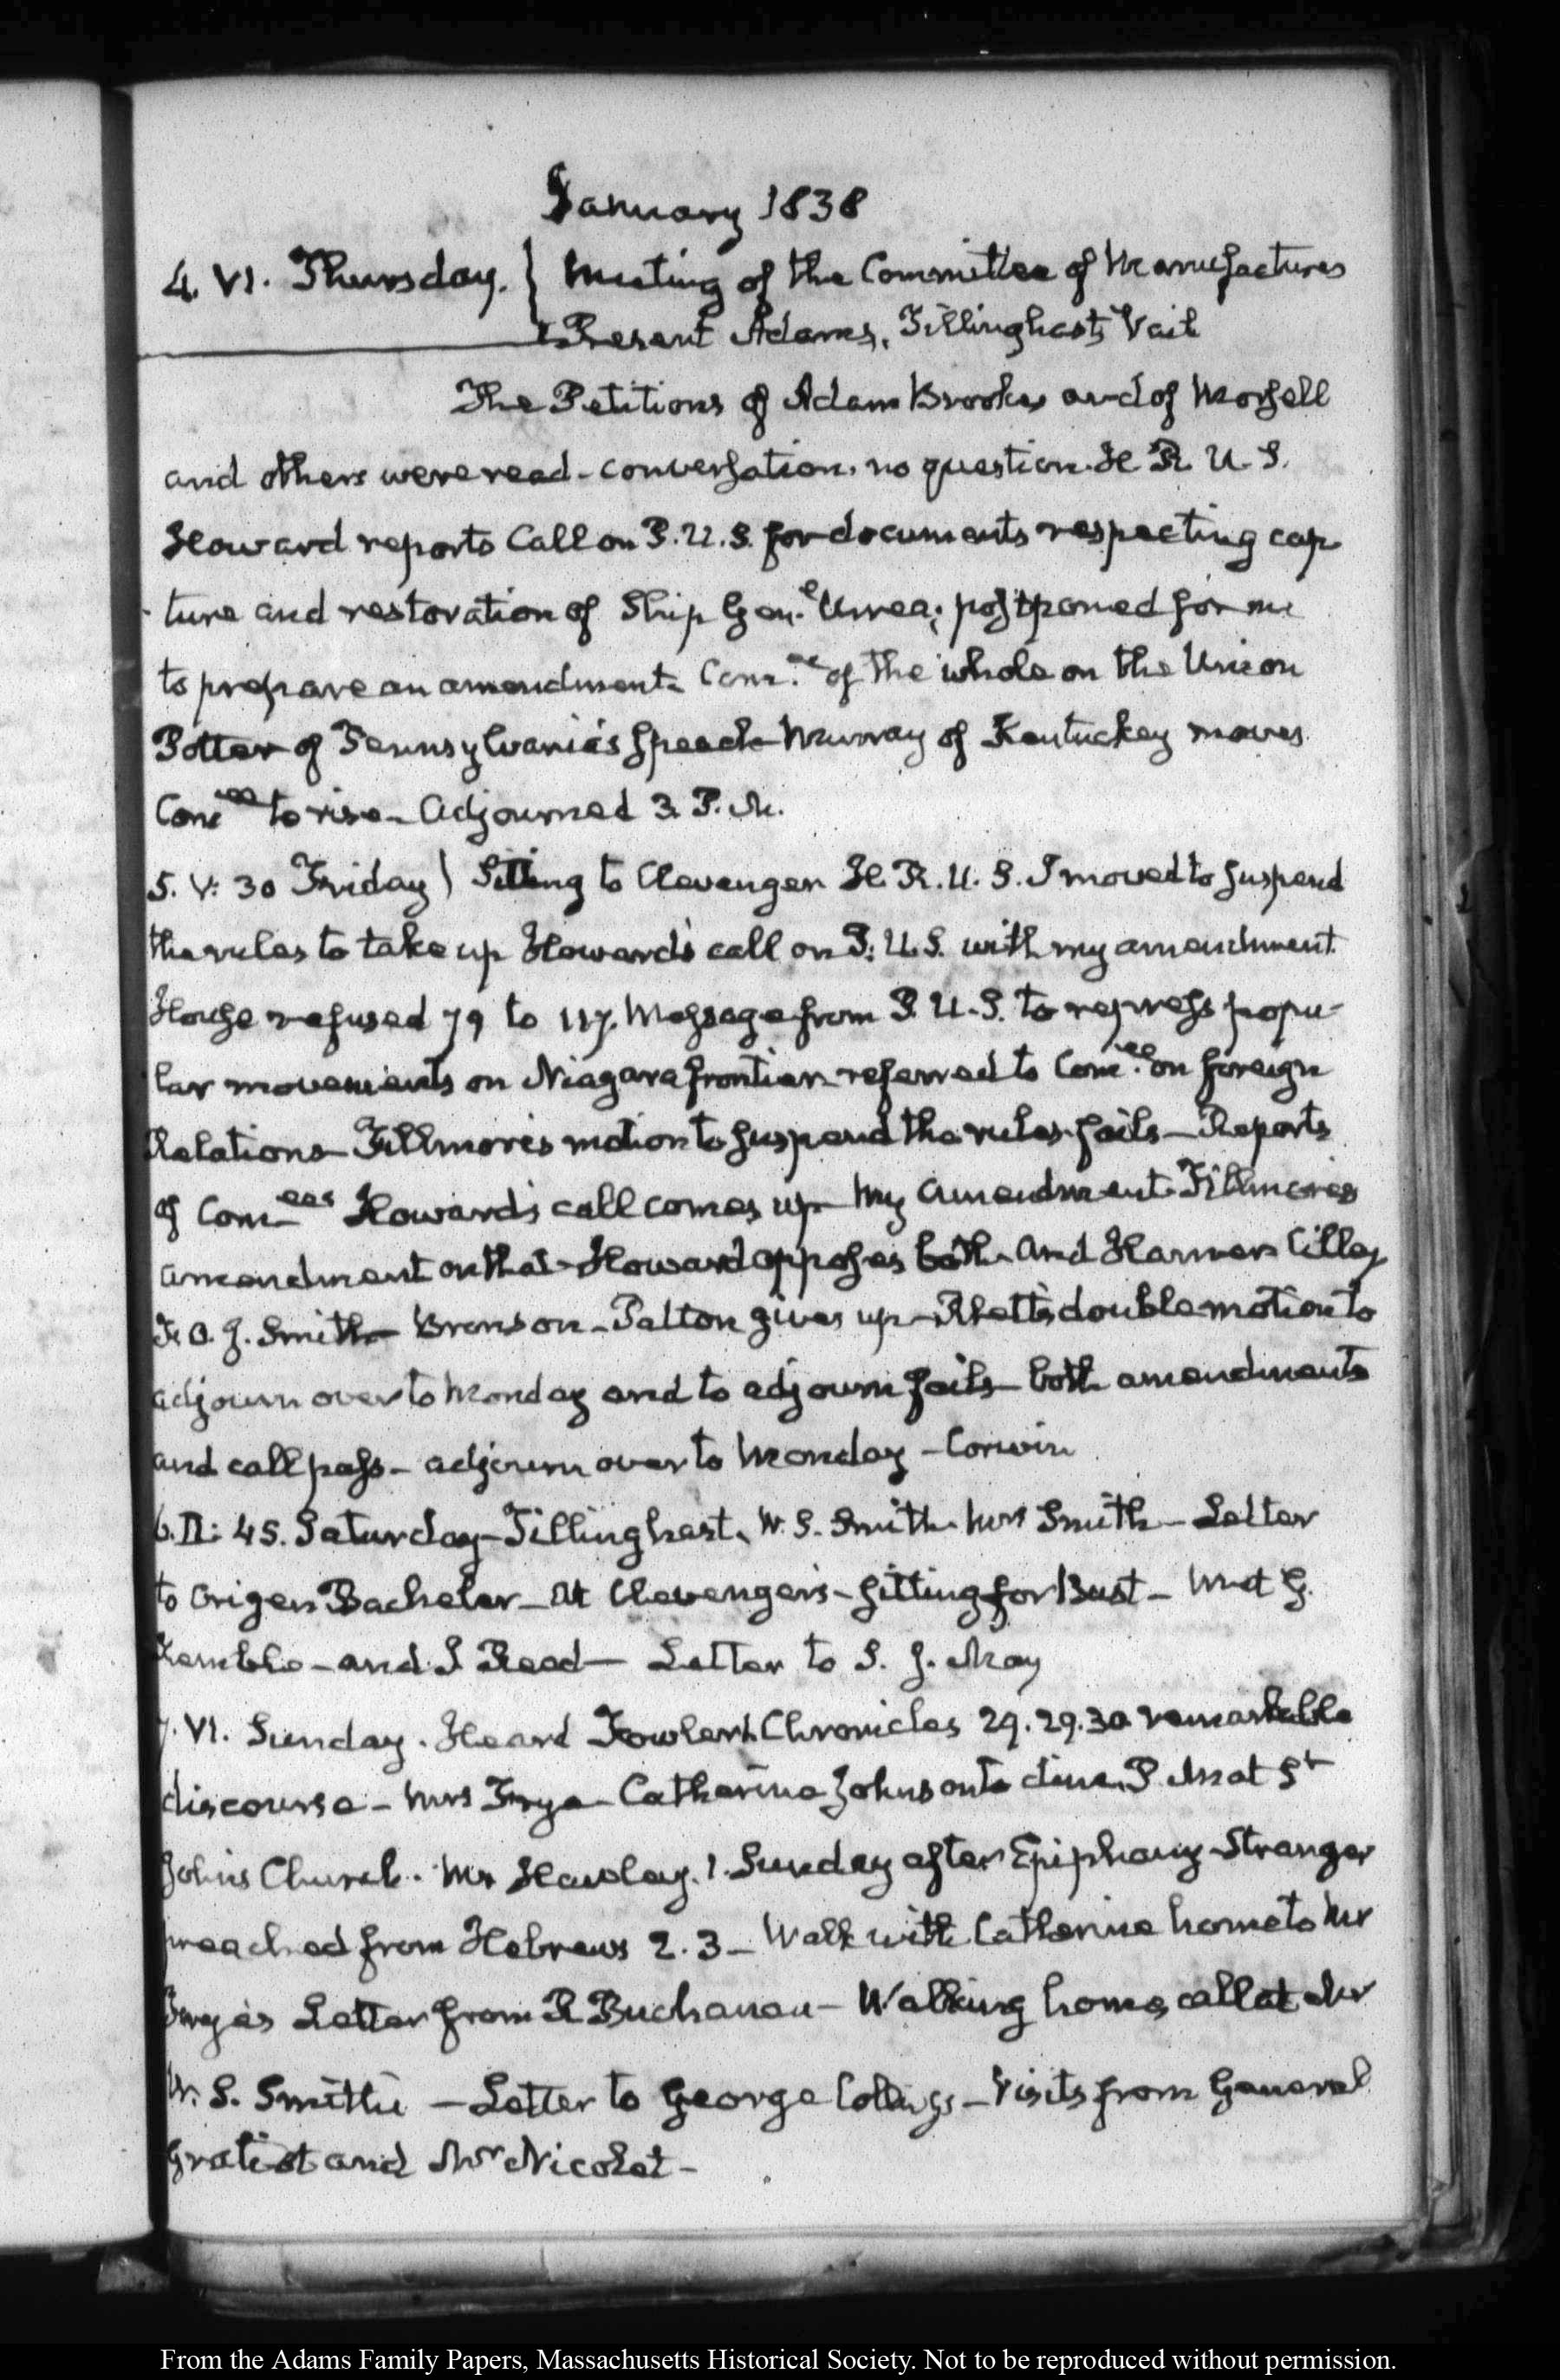 January 1838
4. VI. Thursday. } Meeting of the Committee of Manufactures
Present Adams, Tillinghast, Vail
The Petitions of Adam Brooks and of Morfell
and others were read - conversation. no question. H. R. U. S.
Howard reports Call on P. U. S. for documents respecting cap
ture and restoration of Ship Gen.l Urrea; postponed for me
to prepare an amendment. Com.ee of the whole on the Union
Potter of Pennsylvania's speech - Murray of Kentucky moves
Comee to rise - Adjourned 3. P. M.
5. V: 30 Friday } Sitting to Clevenger H. R. U. S. I moved to suspend
the rules to take up Howard's call on P. U. S. with my amendment
House refused 79 to 117. Message from P. U. S. to repress popu-
lar movements on Niagara frontier referred to Com.ee on foreign
Relations - Fillmore's motion to suspend the rules fails - Reports
of Comees Howard's call comes up - My amendment. Fillmore's
amendment on that - Howard opposes both - And Harmer Cilley
F. O. J. Smith - Bronson - Patton gives up - Rhett's double motion to
adjourn over to Monday and to adjourn fails - both amendments
and call pass - adjourn over to Monday - Corwin
6. II: 45. Saturday - Tillinghast, W. S. Smith. Mrs Smith - Letter
to Origen Bacheler - At Clevenger's - sitting for Bust - Met G.
Kemble - and Read - Letter to S. J. May
7. VI. Sunday. Heard Fowler 1. Chronicles 29. 29. 30 remarkable
discourse - Mrs Frye - Catharine Johnson to dine. P. M. at St
John's Church. Mr Hawley. 1. Sunday after Epiphany - Stranger
preached from Hebrews 2. 3 - Walk with Catherine home to Mr
Frye's Letter from R Buchanan - Walking home, call at Mr
W. S. Smith's - Letter to George Collings - Visits from General
Gratiot and Mr Nicolet -
From the Adams Family Papers, Massachusetts Historical Society. Not to be reproduced without permission.